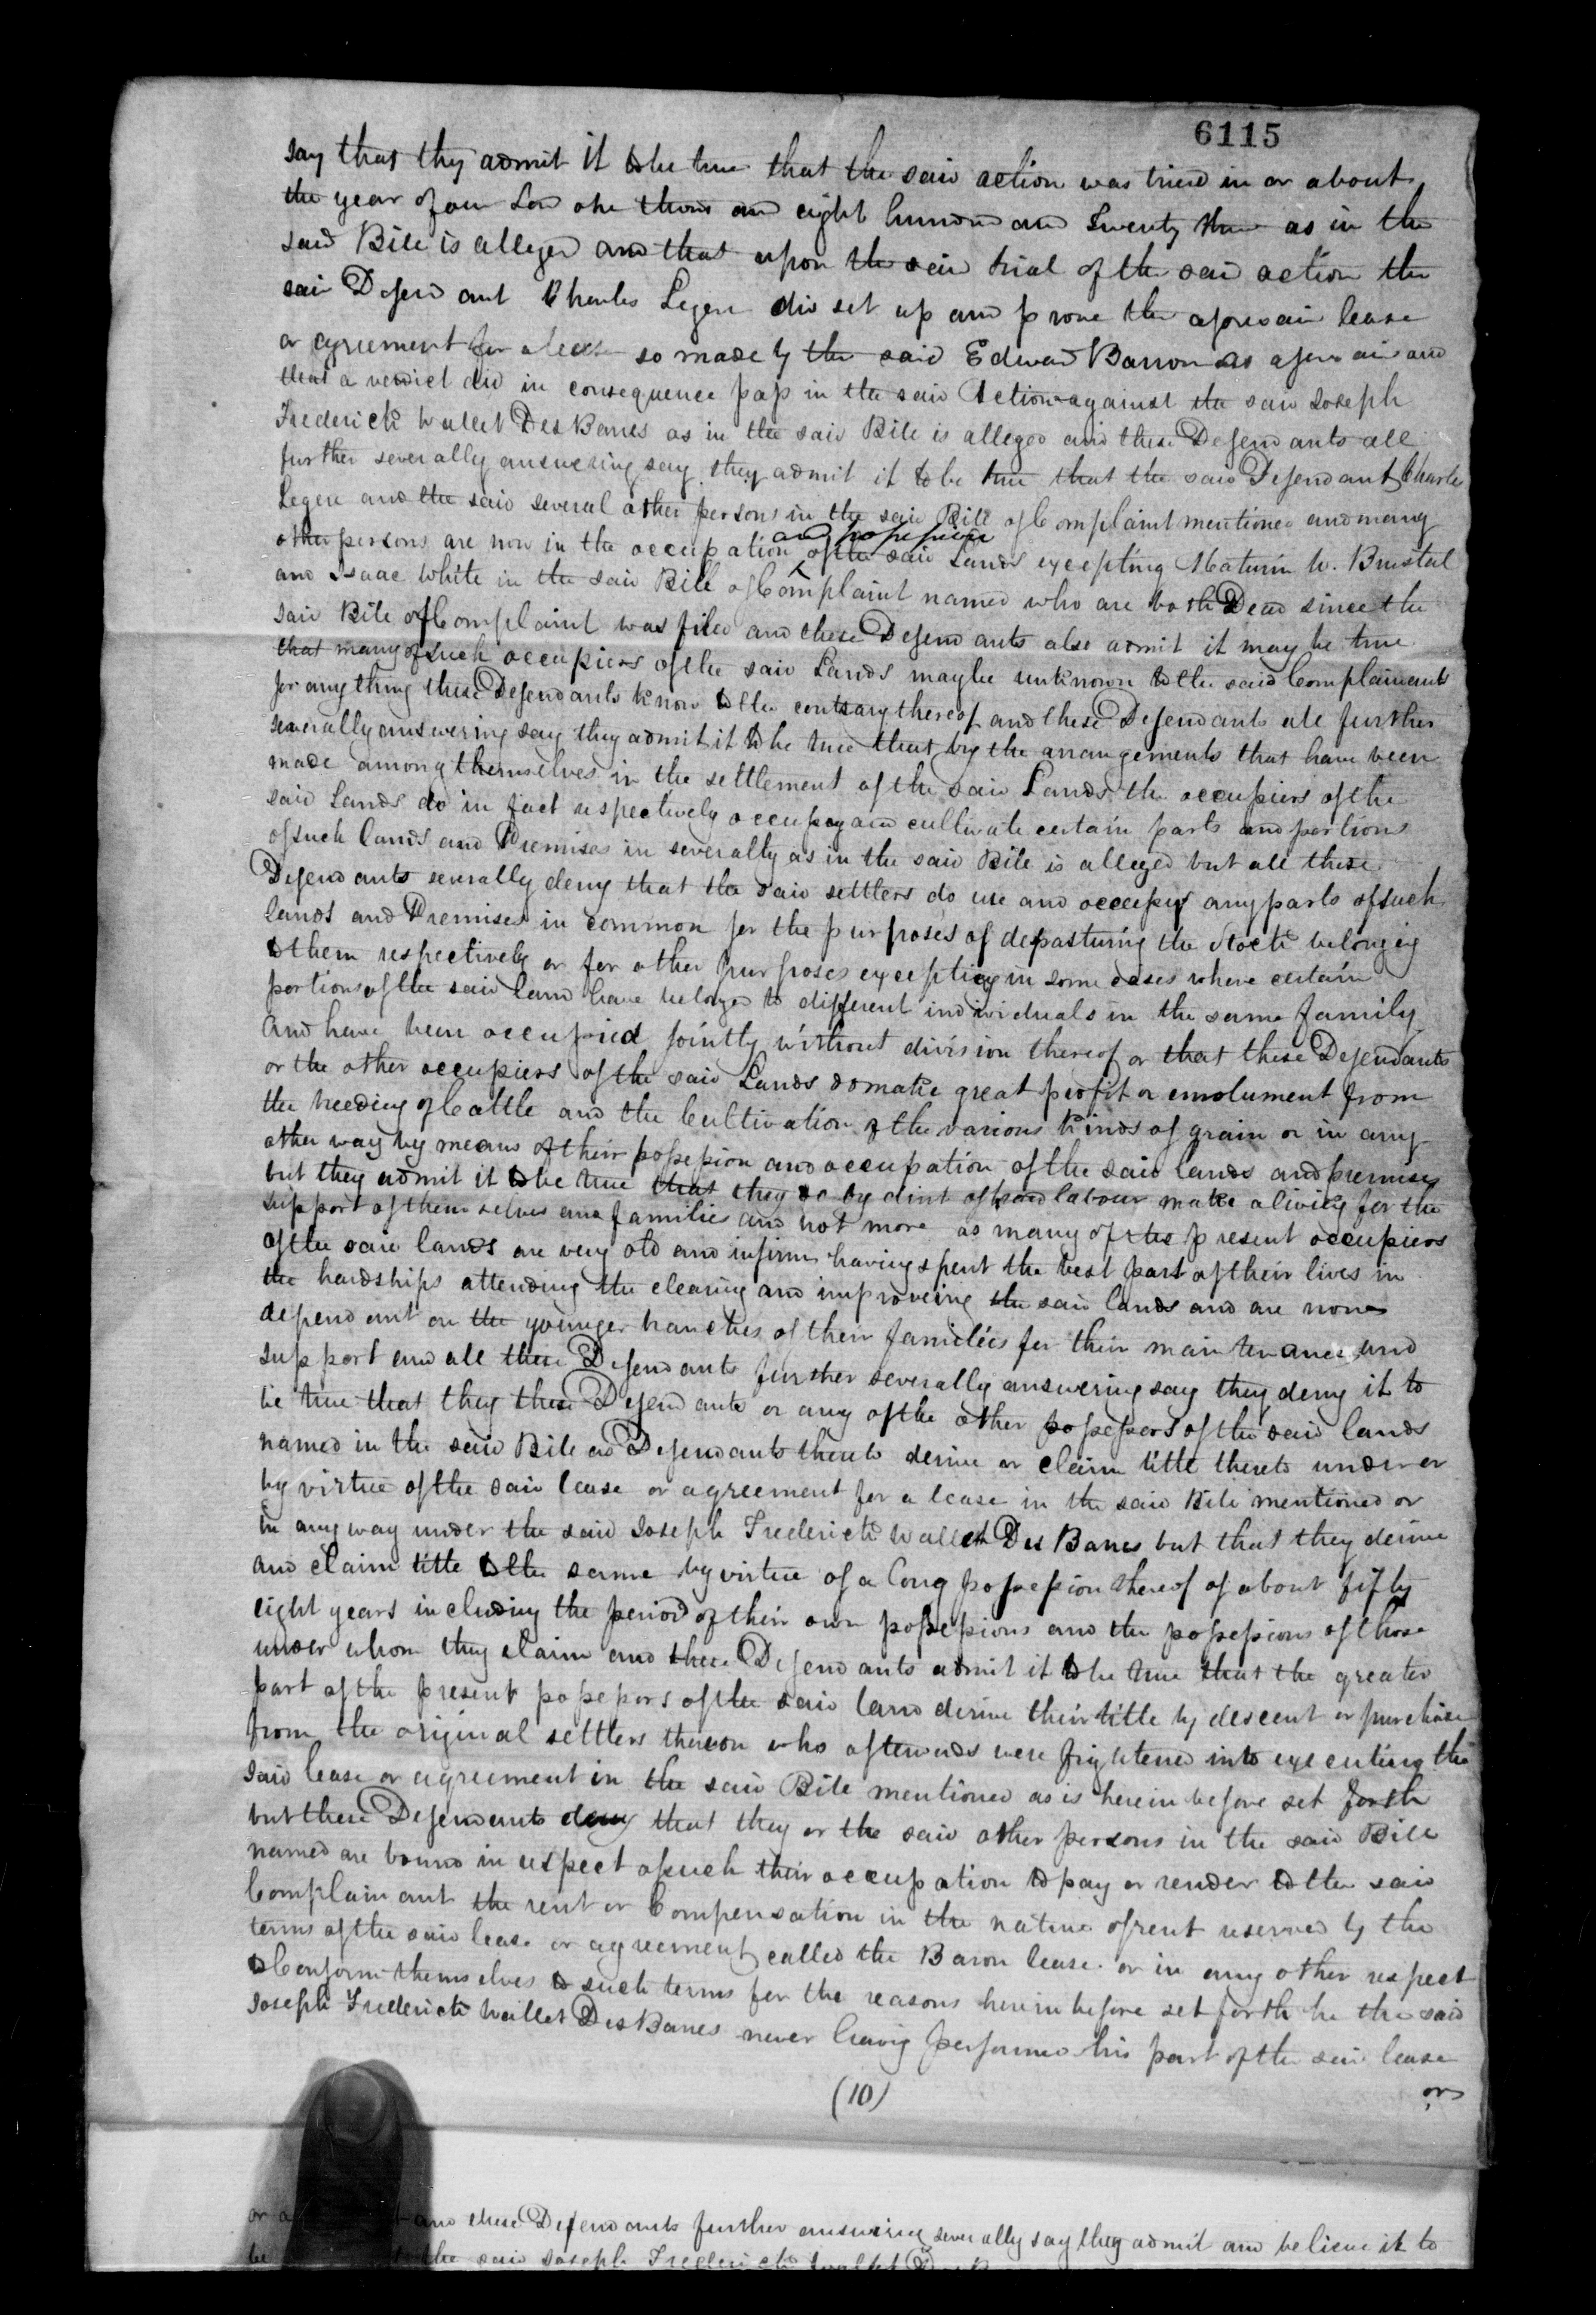 6115
say that they admit it to be true that the said action was tried in or about
the year of our Lord one thous and eight hundred and twenty three as in the
said Bill is alleged and that upon the said trial of the said action the
said Defendant Charles Legere did set up and prove the aforesaid lease
or agreement for a lease so made by the said Edward Barron as aforesaid and
that a verdict did in consequence pass in the said Action against the said Joseph
Frederick Wallet DesBarres as in the said Bill is alleged and these Defendants all
further severally answering say they admit it to be true that the said Defendant Charles
Legere and the said several other persons in the said Bill of Complaint mentioned and many
other persons are now in the occupation and possession of the said Lands excepting Maturin W. Brustal
and Isaac White in the said Bill of Complaint named who are both Dead since the
said Bill of Complaint was filed and these Defendants also admit it may be true
that many of such occupiers of the said Lands maybe unknown to the said Complainants
for any thing these Defendants know to the contrary thereof and these Defendants all further
severally answering say they admit it to be true that by the arrangements that have been
made among themselves in the settlement of the said Lands the occupiers of the
said Lands do in fact respectively occupy and cultivate certain parts and portions
of such lands and Premises in severally as in the said Bill is alleged but all these
Defendants severally deny that the said settlers do use and occupy any parts of such
lands and Premises in common for the purposes of depasturing the Stock belonging
to them respectively or for other purposes excepting in some cases where certain
portions of the said land have belonged to different individuals in the same family
and have been occupied jointly without division thereof or that these Defendants
or the other occupiers of the said Lands do make great profit or emolument from
the breeding of Cattle and the Cultivation of the various kinds of grain or in any
other way by means of their possession and occupation of the said lands and premises
but they admit it to be true that they do by dint of hard labour make a living for the
support of them selves and families and not more as many of the present occupiers
of the said lands are very old and infirm having spent the best part of their lives in
the hardships attending the clearing and improveing the said lands and are now
dependant on the younger branches of their families for their maintenance and
support and all these Defendants further severally answering say they deny it to
be true that they these Defendants or any of the other possessors of the said lands
named in the said Bill as Defendants thereto derive or claim title thereto under or
by virtue of the said lease or agreement for a lease in the said Bill mentioned or
in any way under the said Joseph Frederick Wallet Des Barres but that they derive
and claim title to the same by virtue of a long possession thereof of about fifty
eight years including the period of their own possessions and the possessions of those
under whom they claim and these Defendants admit it to be true that the greater
part of the present possessors of the said land derive their title by descent or purchase
from the original settlers thereon who afterwards were frightened into executing the
said lease or agreement in the said Bill mentioned as is herein before set forth
but these Defendants deny that they or the said other persons in the said Bill
named are bound in respect of such their occupation to pay or render to the said
Complainant the rent or Compensation in the nature of rent reserved by the
terms of the said lease or agreement called the Baron lease or in any other respect
to Conform themselves to such terms for the reasons herein before set forth he the said
Joseph Frederick Wallet DesBarres never having performed his part of the said lease
(10)
or
and these Defendants further answering severally say they admit and believe it to
the said Joseph Frederick Wallet